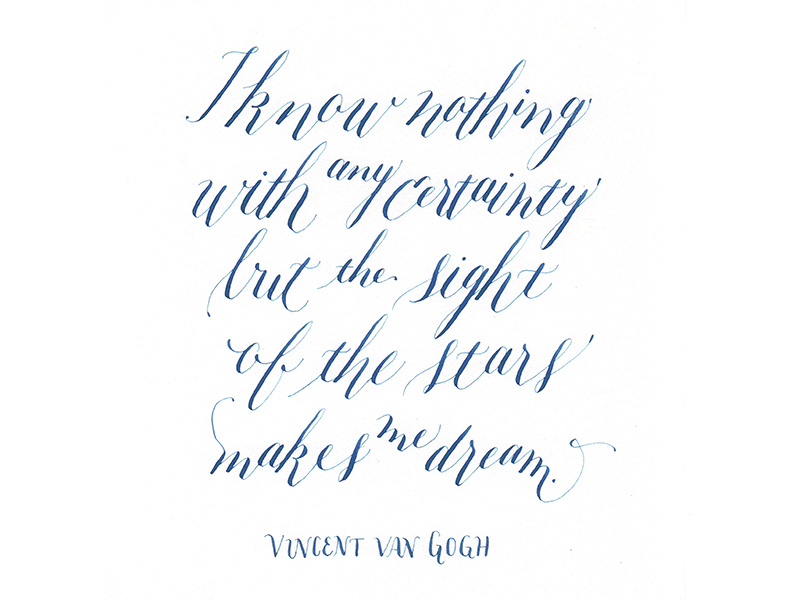 I know nothing
with any certainty
but the sight
of the stars
makes me dream.
VINCENT VAN GOGH